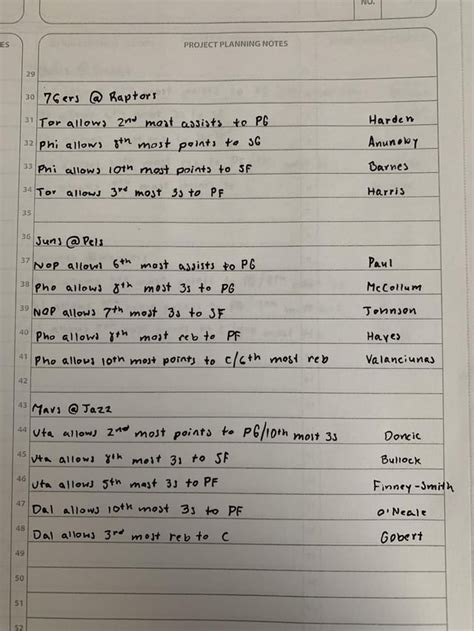 NO.
ES
PROJECT PLANNING NOTES
29
30 76ers @ Raptors
31 Tor allows 2nd most assists to PG Harden
32 Phi allows 8th most points to SG Anunoby
33 Phi allows 10th most points to SF Barnes
34 Tor allows 3rd most 3s to PF Harris
35
36 Suns @ Pels
37 NOP allows 6th most assists to PG Paul
38 Pho allows 8th most 3s to PG McCollum
39 NOP allows 7th most 3s to SF Johnson
40 Pho allows 8th most reb to PF Hayes
41 Pho allows 10th most points to C/6th most reb Valanciunas
42
43 Mavs @ Jazz
44 Uta allows 2nd most points to PG/10th most 3s Doncic
45 Uta allows 8th most 3s to SF Bullock
46 Uta allows 5th most 3s to PF Finney-Smith
47 Dal allows 10th most 3s to PF O'Neale
48 Dal allows 3rd most reb to C Gobert
49
50
51
52